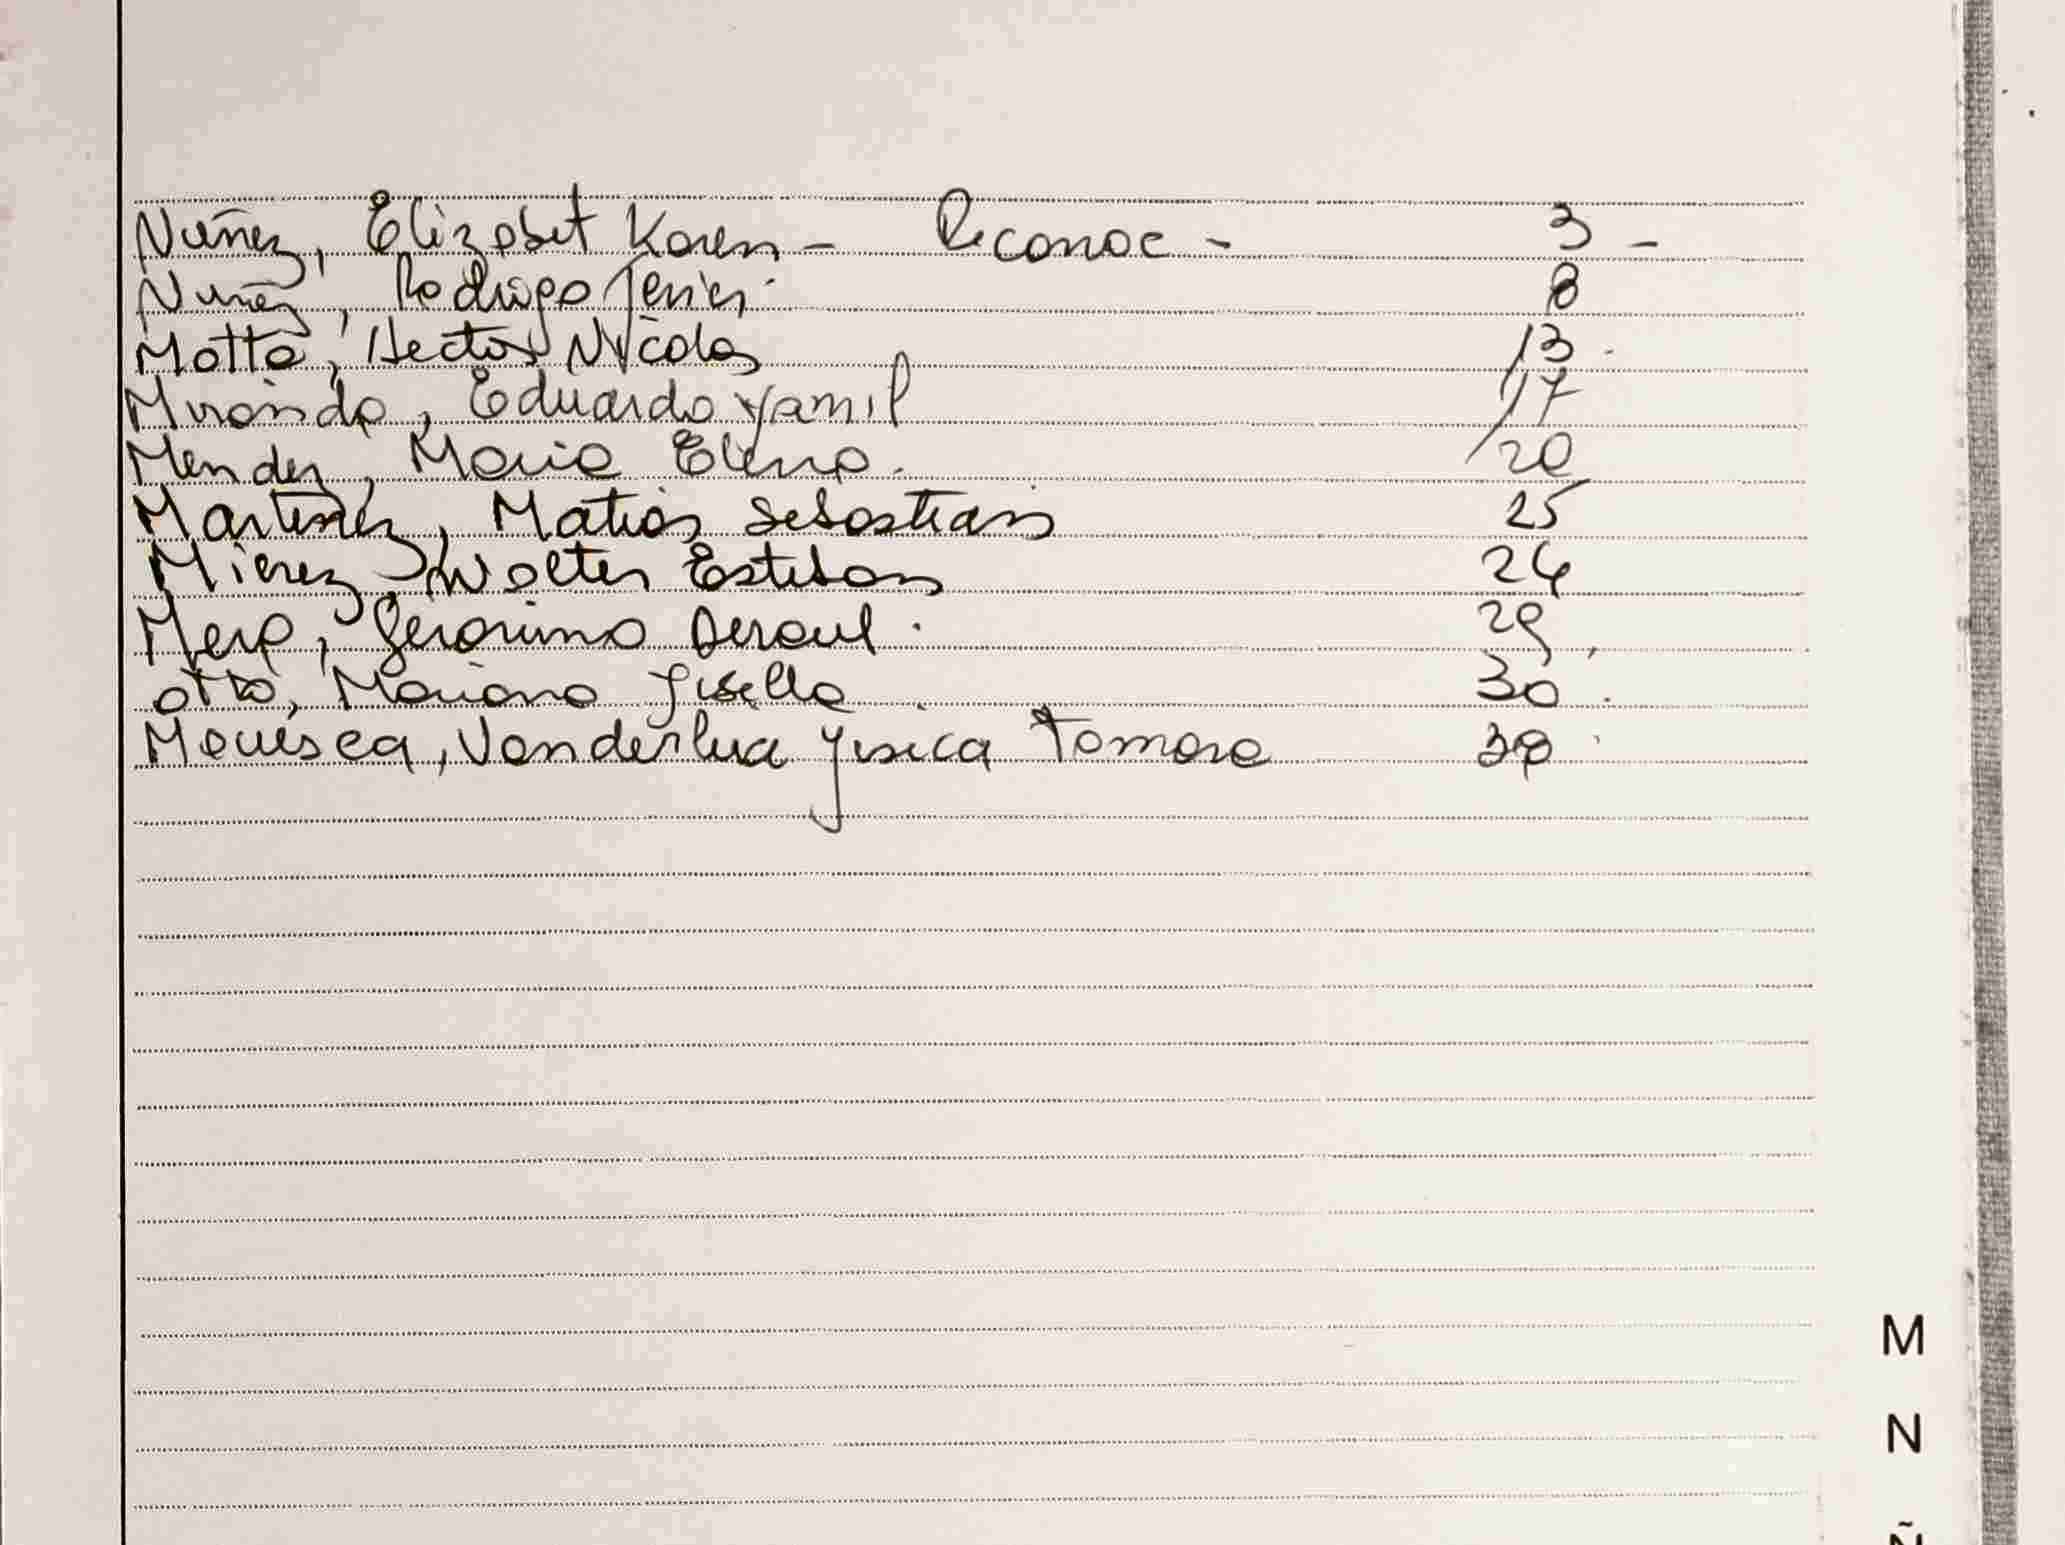 Nuñez, Elizabet Karen - Reconoc - 3 -
Nuñez, Rodrigo Javier 8
Motta, Hector Nicolas 13
Miranda, Eduardo Yamil 17
Mendez, Maria Elena. 20
Martinez, Matias Sebastian 25
Mierez, Walter Esteban 26
Mera, Geronimo 29
Otto, Mariana Gisella 30
Vanderleia Jesica Tamara
M
N
Ñ